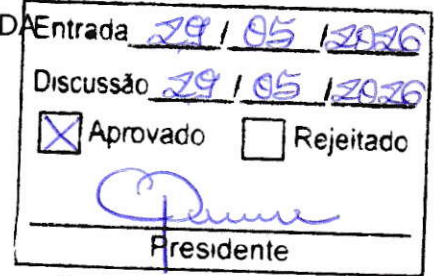 DA
Entrada 29 / 05 / 2026
Discussão 29 / 05 / 2026
Aprovado Rejeitado
Presidente